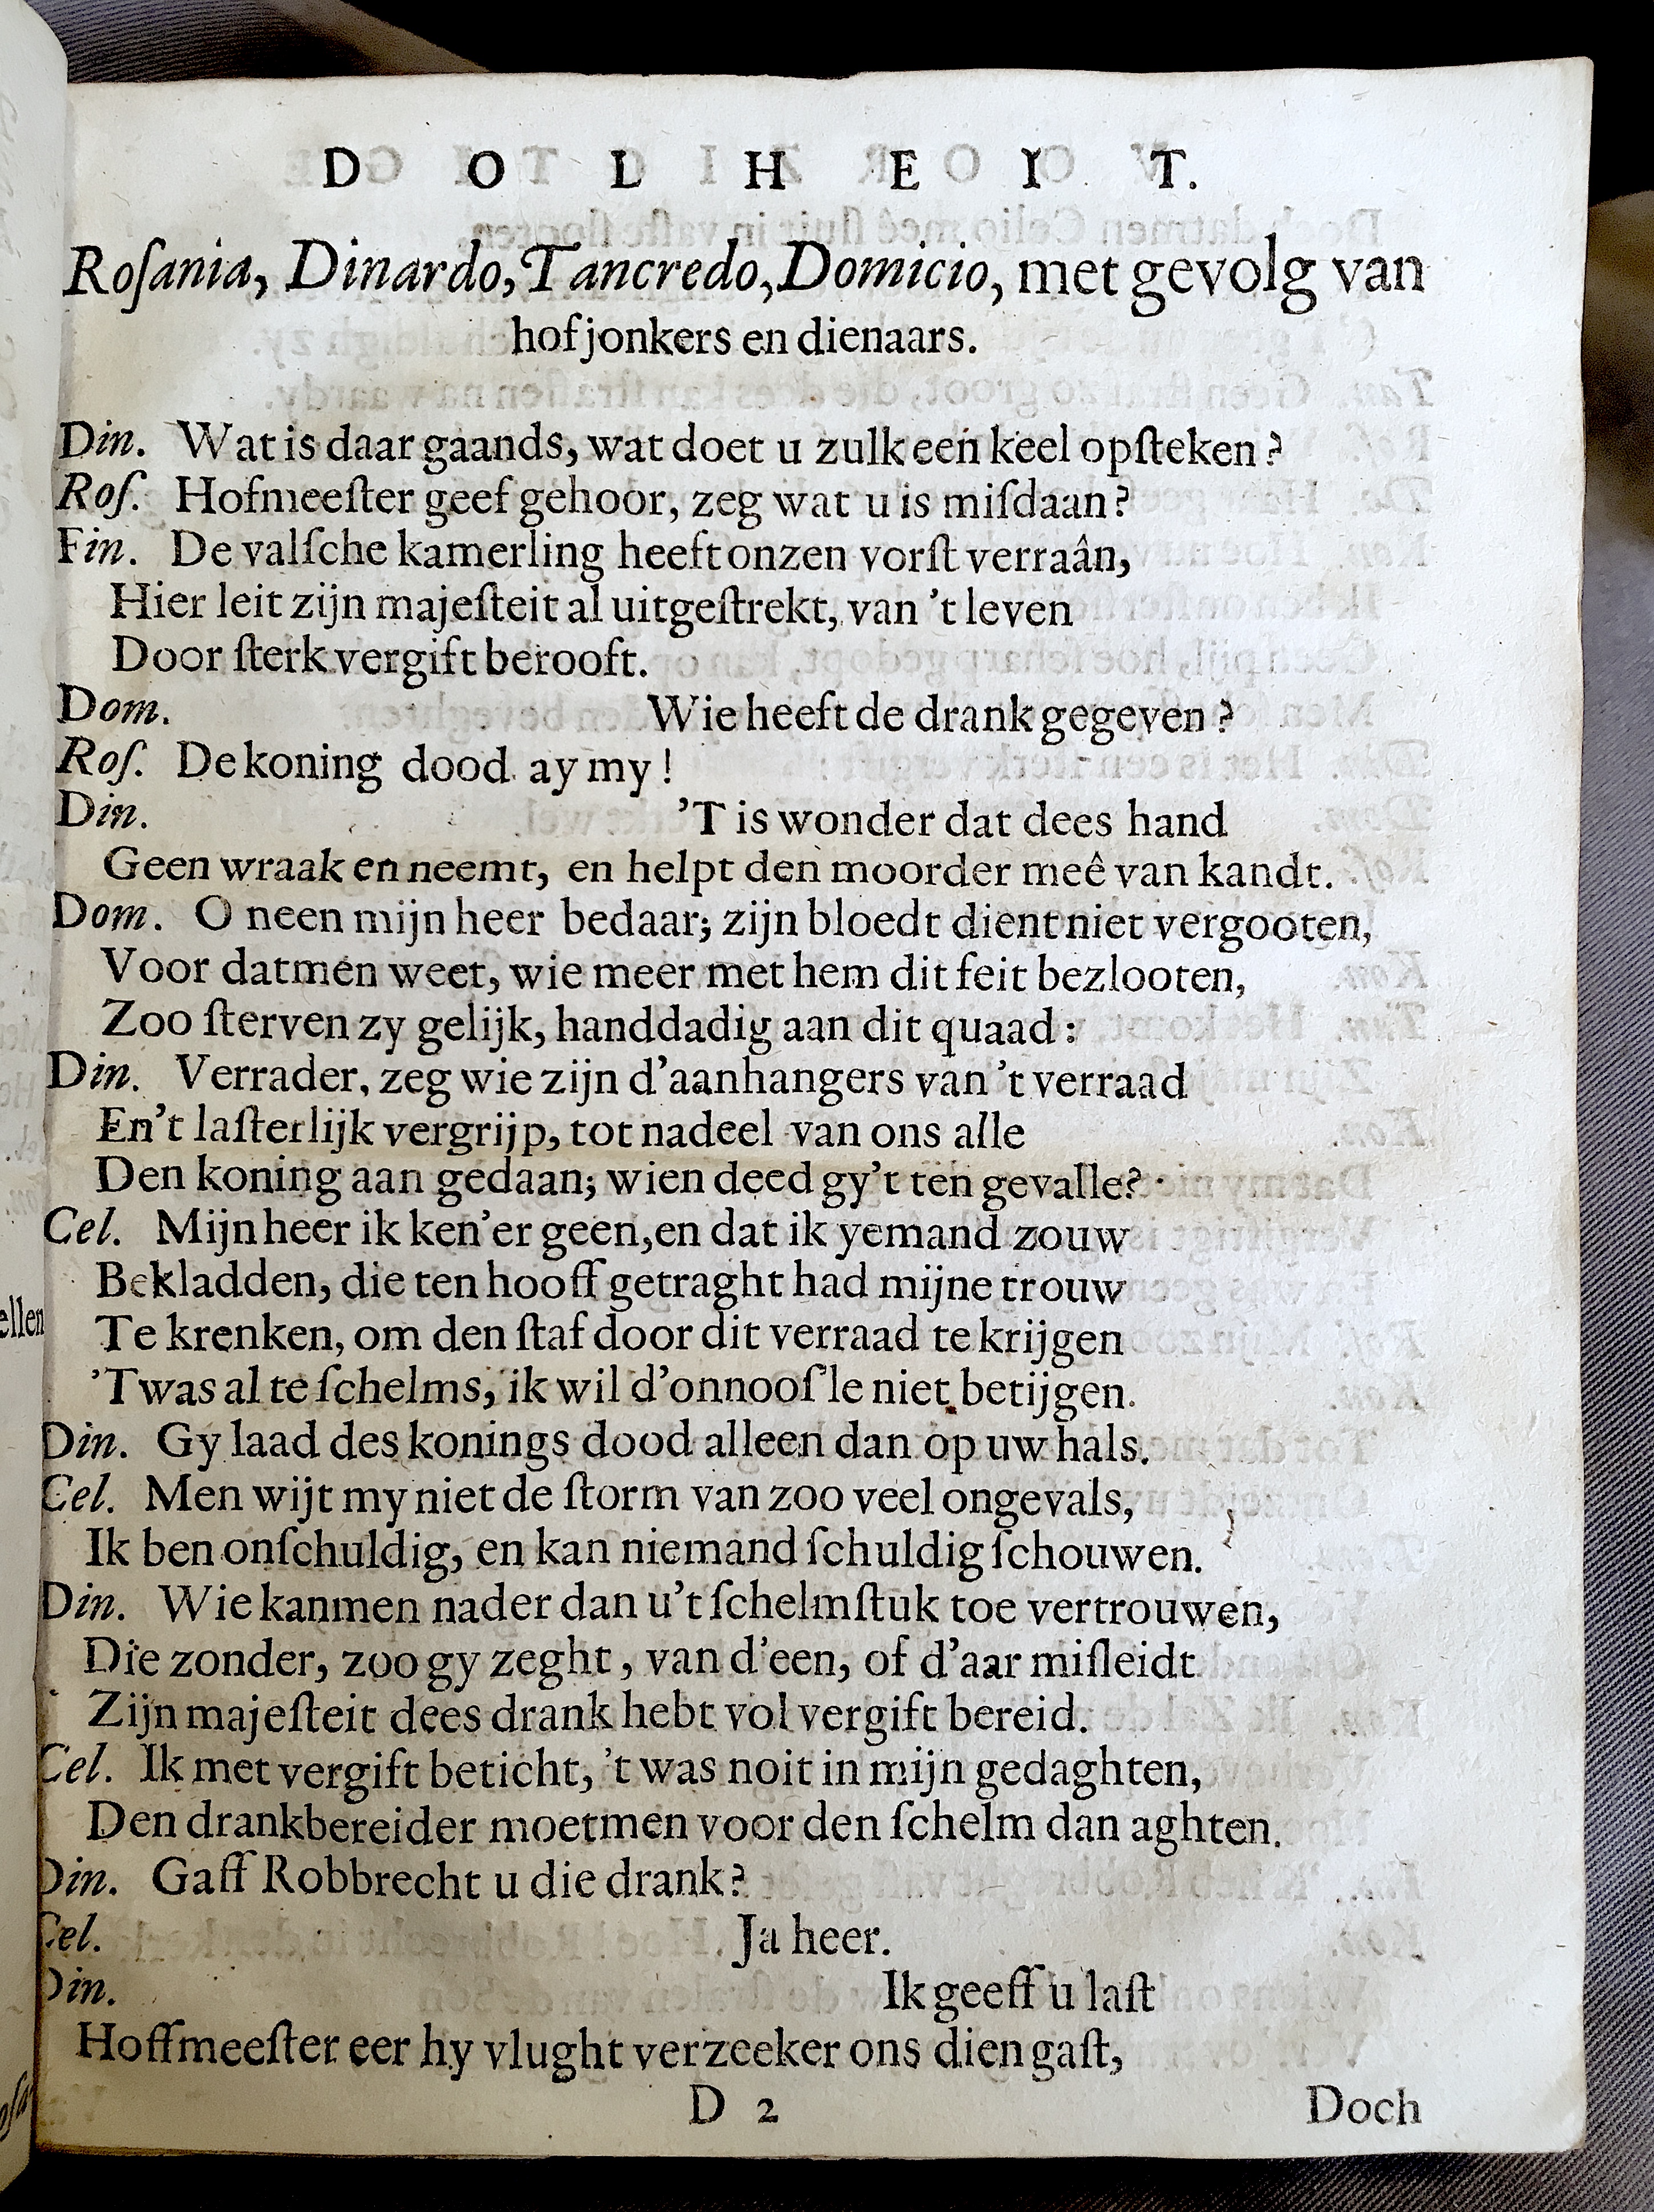 DOLHEIT.
Roſania, Dinardo, Tancredo, Domicio, met gevolg van
hofjonkers en dienaars.
Din. Wat is daar gaands, wat doet u zulk een keel opſteken?
Roſ. Hofmeeſter geef gehoor, zeg wat u is miſdaan?
Fin. De valſche kamerling heeft onzen vorſt verraân,
Hier leit zijn majeſteit al uitgeſtrekt, van 't leven
Door ſterk vergift berooft.
Dom. Wie heeft de drank gegeven?
Roſ. De koning dood ay my!
Din. 'T is wonder dat dees hand
Geen wraak en neemt, en helpt den moorder meê van kandt.
Dom. O neen mijn heer bedaar; zijn bloedt dient niet vergooten,
Voor datmen weet, wie meer met hem dit feit bezlooten,
Zoo ſterven zy gelijk, handdadig aan dit quaad:
Din. Verrader, zeg wie zijn d'aanhangers van 't verraad
En 't laſterlijk vergrijp, tot nadeel van ons alle
Den koning aan gedaan; wien deed gy't ten gevalle?
Cel. Mijn heer ik ken'er geen, en dat ik yemand zouw
Bekladden, die ten hooff getraght had mijne trouw
Te krenken, om den ſtaf door dit verraad te krijgen
'Twas al te ſchelms, ik wil d'onnooſ'le niet betijgen.
Din. Gy laad des konings dood alleen dan op uw hals.
Cel. Men wijt my niet de ſtorm van zoo veel ongevals,
Ik ben onſchuldig, en kan niemand ſchuldig ſchouwen.
Din. Wie kanmen nader dan u 't ſchelmſtuk toe vertrouwen,
Die zonder, zoo gy zeght, van d'een, of d'aar miſleidt
Zijn majeſteit dees drank hebt vol vergift bereid.
Cel. Ik met vergift beticht, 't was noit in mijn gedaghten,
Den drankbereider moetmen voor den ſchelm dan aghten.
Din. Gaff Robbrecht u die drank?
Cel. Ja heer.
Din. Ik geeff u laſt
Hoffmeeſter eer hy vlught verzeeker ons dien gaſt,
D 2 Doch
ellen